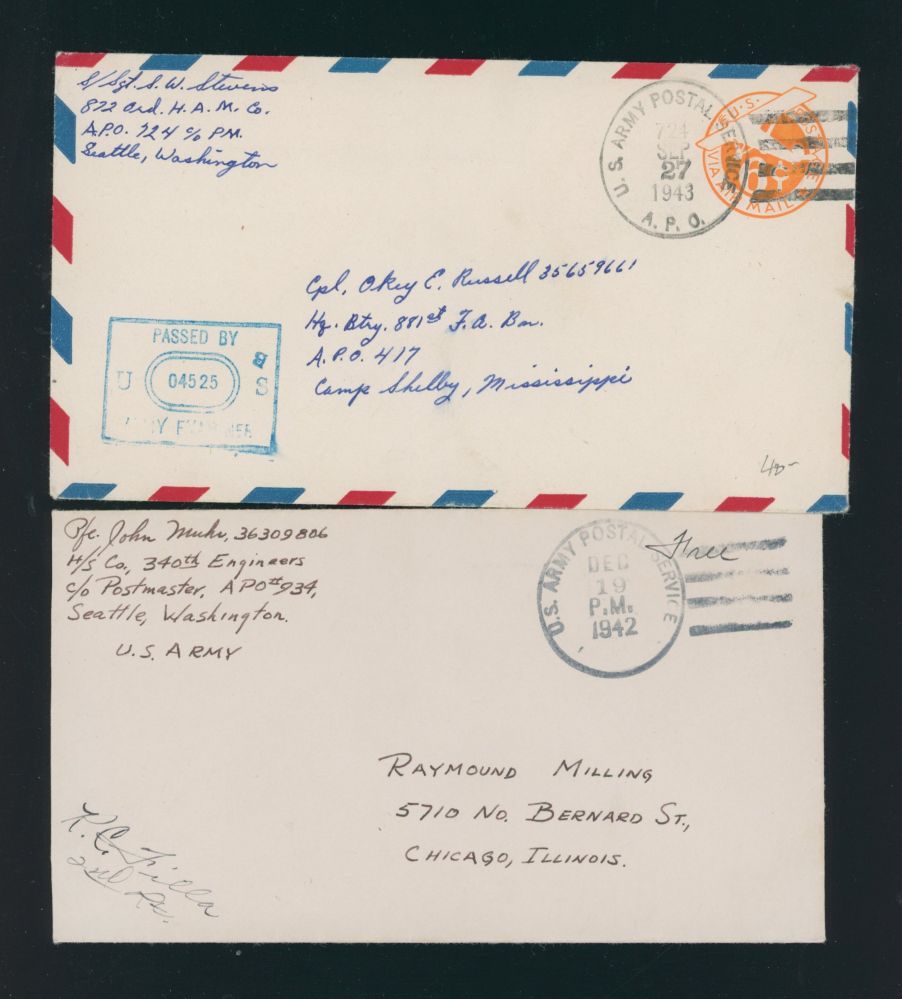 S/Sgt. S. W. Stevens
822 Ord. H. A. M. Co.
A.P.O. 724 c/o P.M.
Seattle, Washington
U.S. ARMY POSTAL SERVICE
724
SEP
27
1943
A. P. O.
U.S. POSTAGE
6¢
VIA AIR MAIL
Cpl. Okey E. Russell 35659661
Hq. Btry. 881st F.A. Bn.
A.P.O. 417
Camp Shelby, Mississippi
PASSED BY
U 04525 S
ARMY EXAMINER
40-
Pfc. John Muhr, 36309806
H/S Co., 340th Engineers
c/o Postmaster, APO #934,
Seattle, Washington.
U.S. ARMY
U.S. ARMY POSTAL SERVICE
DEC
19
P.M.
1942
Free
RAYMOUND MILLING
5710 NO. BERNARD ST.,
CHICAGO, ILLINOIS.
K. C. Filla
2nd